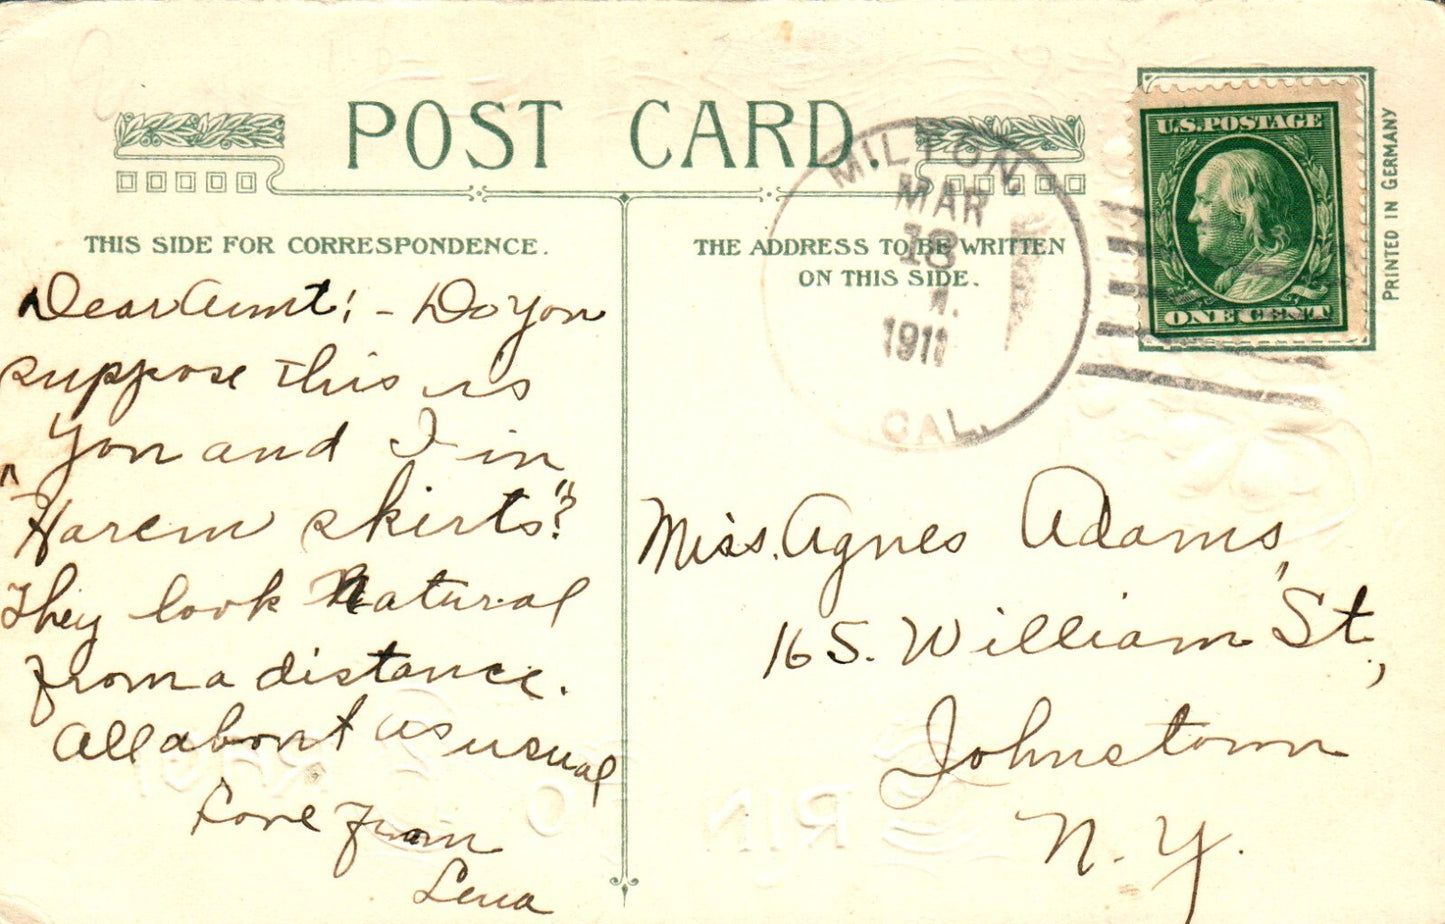 POST CARD.
THIS SIDE FOR CORRESPONDENCE.
Dear Aunt! - Do you
suppose this is
you and I in
"Harem skirts"?
They look natural
from a distance.
All about as usual
Love from
Lena
THE ADDRESS TO BE WRITTEN
ON THIS SIDE.
MILTON
MAR
18
1911
CAL.
U.S. POSTAGE
ONE CENT
PRINTED IN GERMANY
Miss. Agnes Adams,
16 S. William St.,
Johnstown
N. Y.